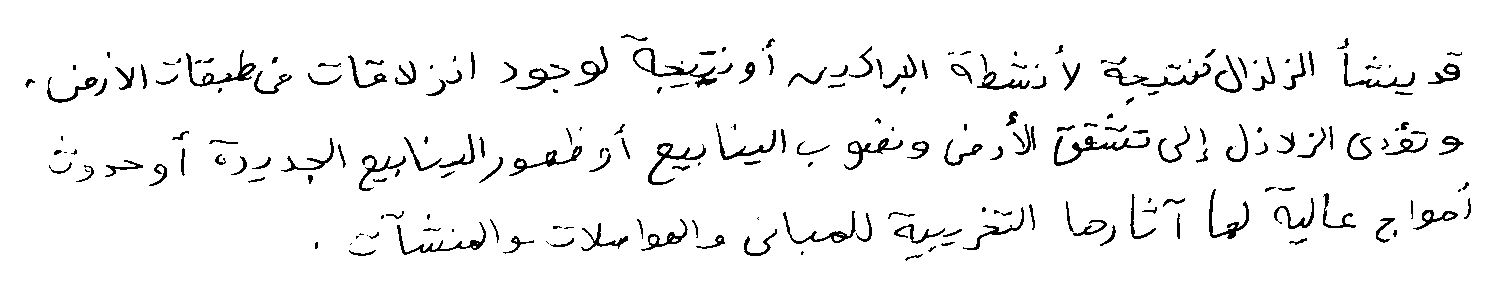 قد ينشأ الزلزال كنتيجة لأنشطة البراكين أو نتيجة لوجود انزلاقات فى طبقات الارض .
وتؤدى الزلازل إلى تشقق الأرض ونضوب الينابيع أو ظهور الينابيع الجديدة أو حدوث
أمواج عالية لها آثارها التخريبية للمبانى والمواصلات والمنشآت .